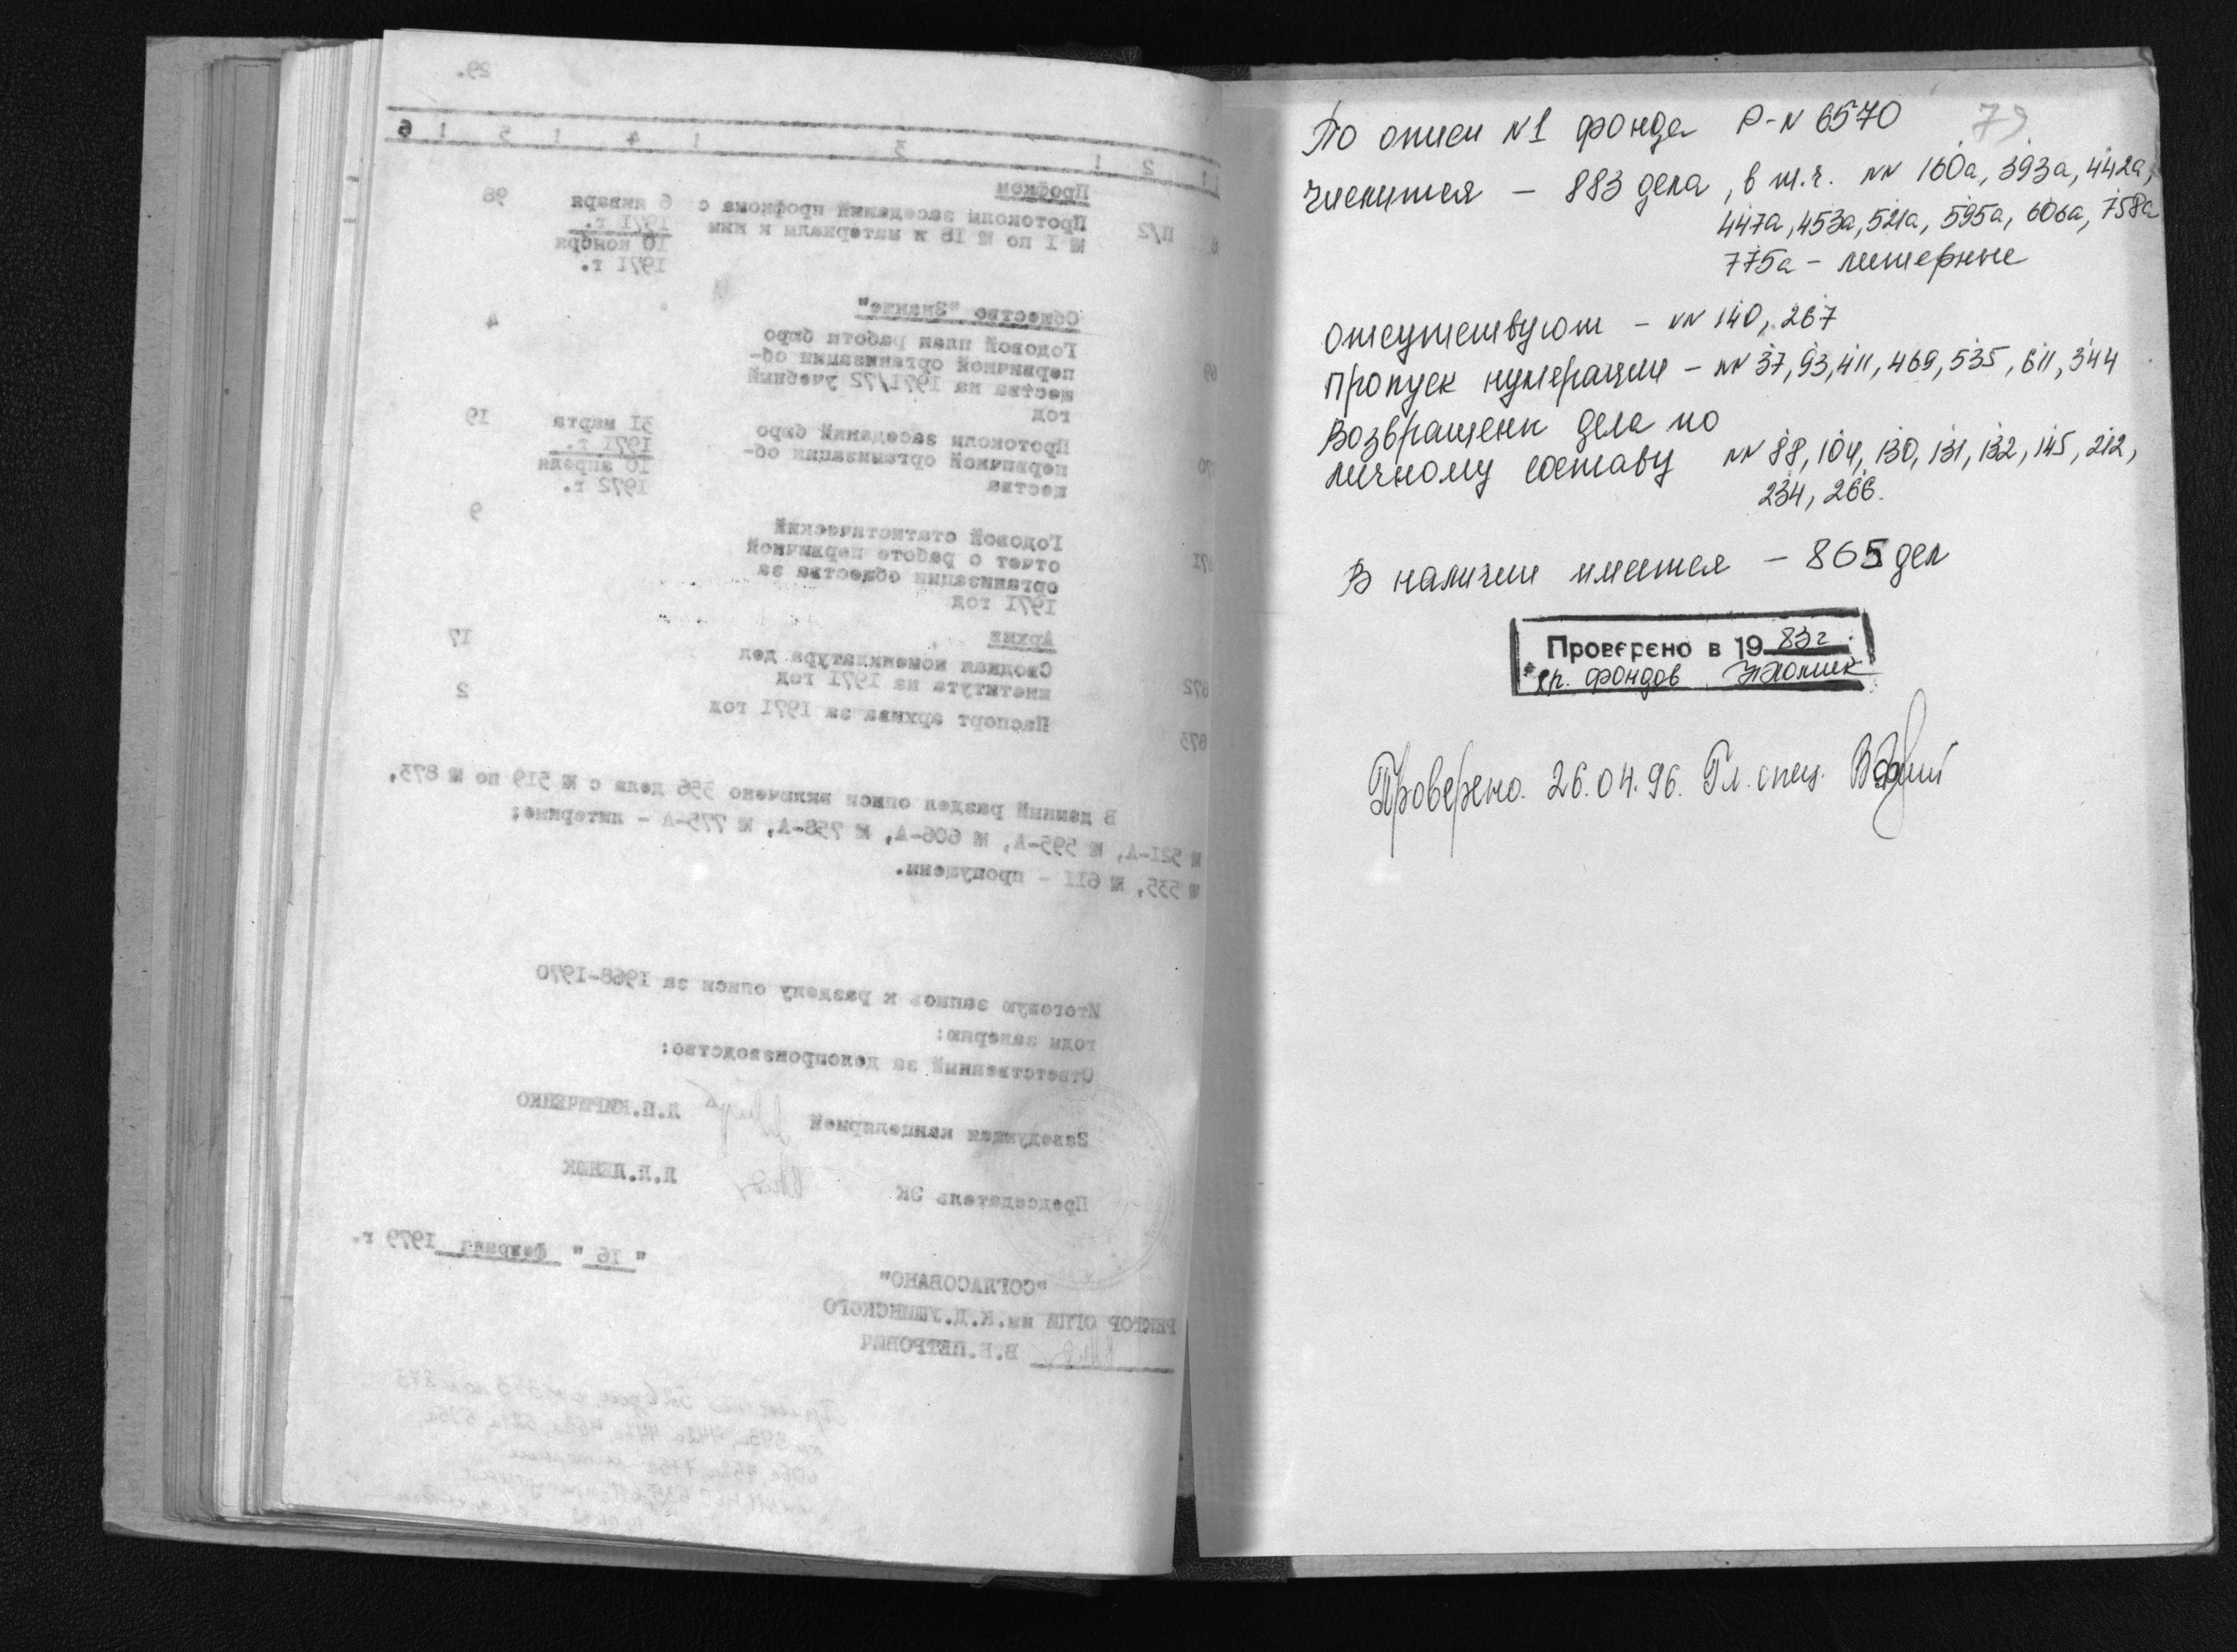 29.
1 1 2 1 3 1 4 1 5 1 6
Профком
П/2 Протоколы заседаний профкома с № 1 по № 18 и материалы к ним 6 января 1971 г. 10 ноября 1971 г. 98
Общество "Знание"
69 Годовой план работы бюро 4
первичной организации об-
щества на 1971/72 учебный
год
70 Протоколы заседаний бюро 31 марта 19
первичной организации об- 1971 г.
щества 10 апреля
1972 г.
871 Годовой статистический 9
отчет о работе первичной
организации общества за
1971 год
Архив
872 Сводная номенклатура дел 17
института на 1971 год
873 Паспорт архива за 1971 год 2
В данный раздел описи включено 356 дела с № 519 по № 873,
№ 521-А, № 595-А, № 606-А, № 758-А, № 775-А - литерные;
№ 535, № 611 - пропущены.
Итоговую запись к разделу описи за 1968-1970
годы заверяю:
Ответственный за делопроизводство:
Заведующая канцелярией Л.П.КИРИЧЕНКО
Председатель ЭК
" 16 " февраля 1979 г.
"СОГЛАСОВАНО"
РЕКТОР ОГПИ им.К.Д.УШИНСКОГО
79
По описи N1 фонда Р-N 6570
числится – 883 дела, в т.ч. NN 160а, 393а, 442а,
447а, 453а, 521а, 595а, 606а, 758а
775а – литерные
отсутствуют – NN 140, 267
пропуск нумерации – NN 37, 93, 411, 469, 535, 611, 344
Возвращены дела по
личному составу NN 88, 104, 130, 131, 132, 145, 212,
234, 266.
В наличии имеется – 865 дел
Проверено в 1983г.
хр. фондов
Проверено. 26.04.96. Гл. спец.